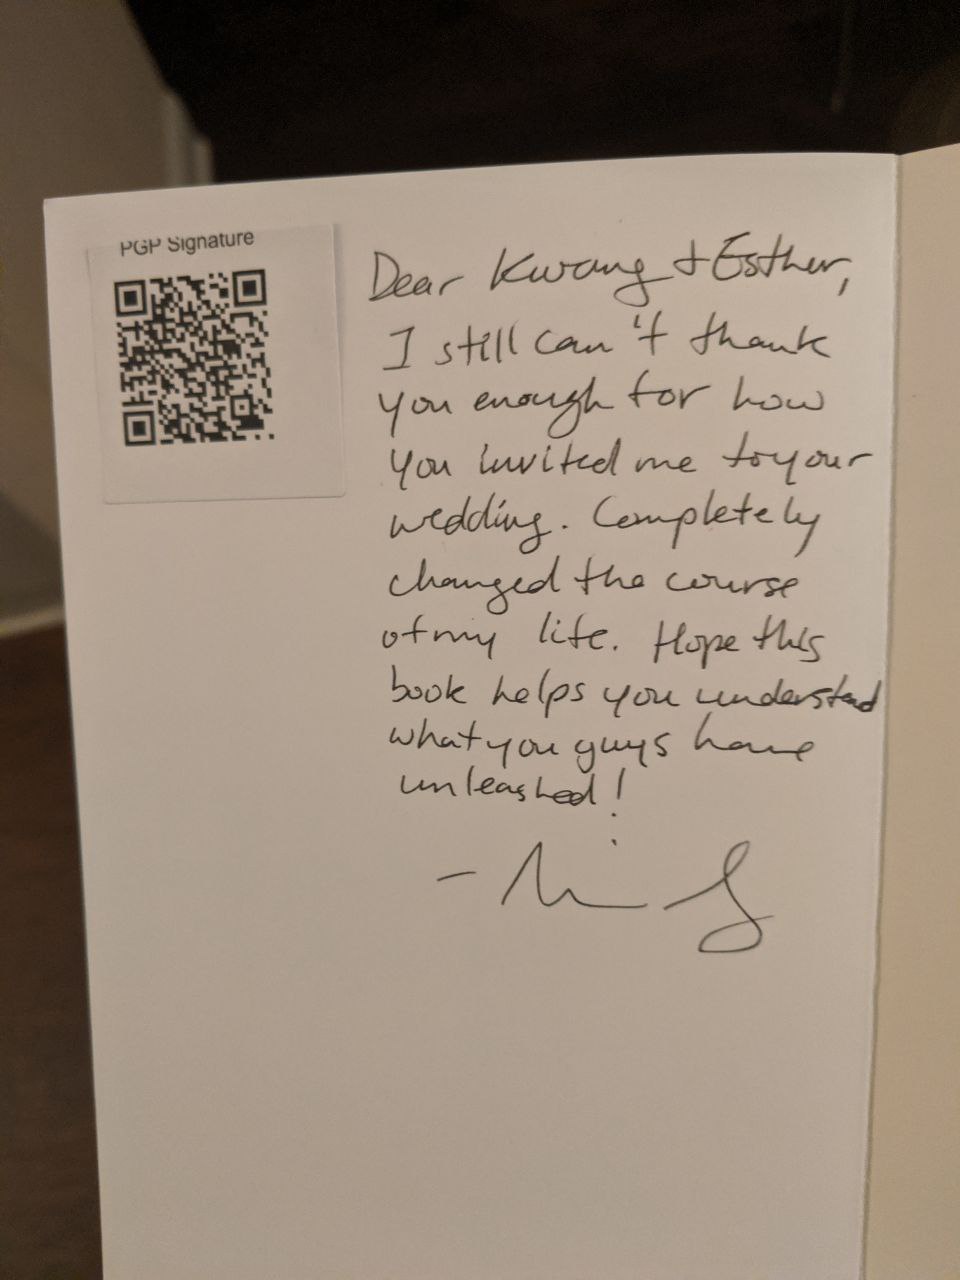 PGP Signature
Dear Kwang + Esther,
I still can't thank
you enough for how
you invited me to your
wedding. Completely
changed the course
of my life. Hope this
book helps you understand
what you guys have
unleashed!